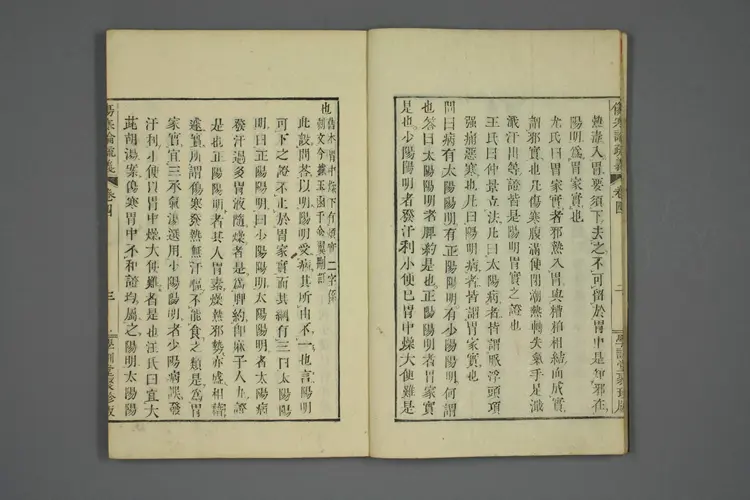 傷寒論疏義 卷四 二 學訓堂聚珍版
熱毒入胃要須下去之不可留於胃中是知邪在
陽明爲胃家實也
尤氏曰胃家實者邪熱入胃與糟粕相結而成實
謂邪實也凡傷寒腹滿便閉潮熱轉失氣手足濈
濈汗出等證皆是陽明胃實之證也
王氏曰仲景立法凡曰太陽病者皆謂脈浮頭項
强痛惡寒也凡曰陽明病者皆謂胃家實也
問曰病有太陽陽明有正陽陽明有少陽陽明何謂
也答曰太陽陽明者脾約是也正陽陽明者胃家實
是也少陽陽明者發汗利小便已胃中燥大便難是
也舊本胃中燥下有煩實二字係
衍文今據玉函千金翼刪訂
此設問答以明陽明受病其所由不一也言陽明
可下之證不止於胃家實而其綱有三曰太陽陽
明曰正陽陽明曰少陽陽明太陽陽明者太陽病
發汗過多胃液隨燥者是爲脾約卽麻子人丸證
是也正陽陽明者其人胃素燥熱邪勢亦盛相藉
遂實所謂傷寒發熱無汗 不能食之類是爲胃
家實宜三承氣湯選用少陽陽明者少陽病誤發
汗利小便以胃中燥大便難者是也汪氏曰宜大
柴胡湯案傷寒胃中不和證均屬之陽明太陽陽
傷寒論疏義 卷四 三 學訓堂聚珍版